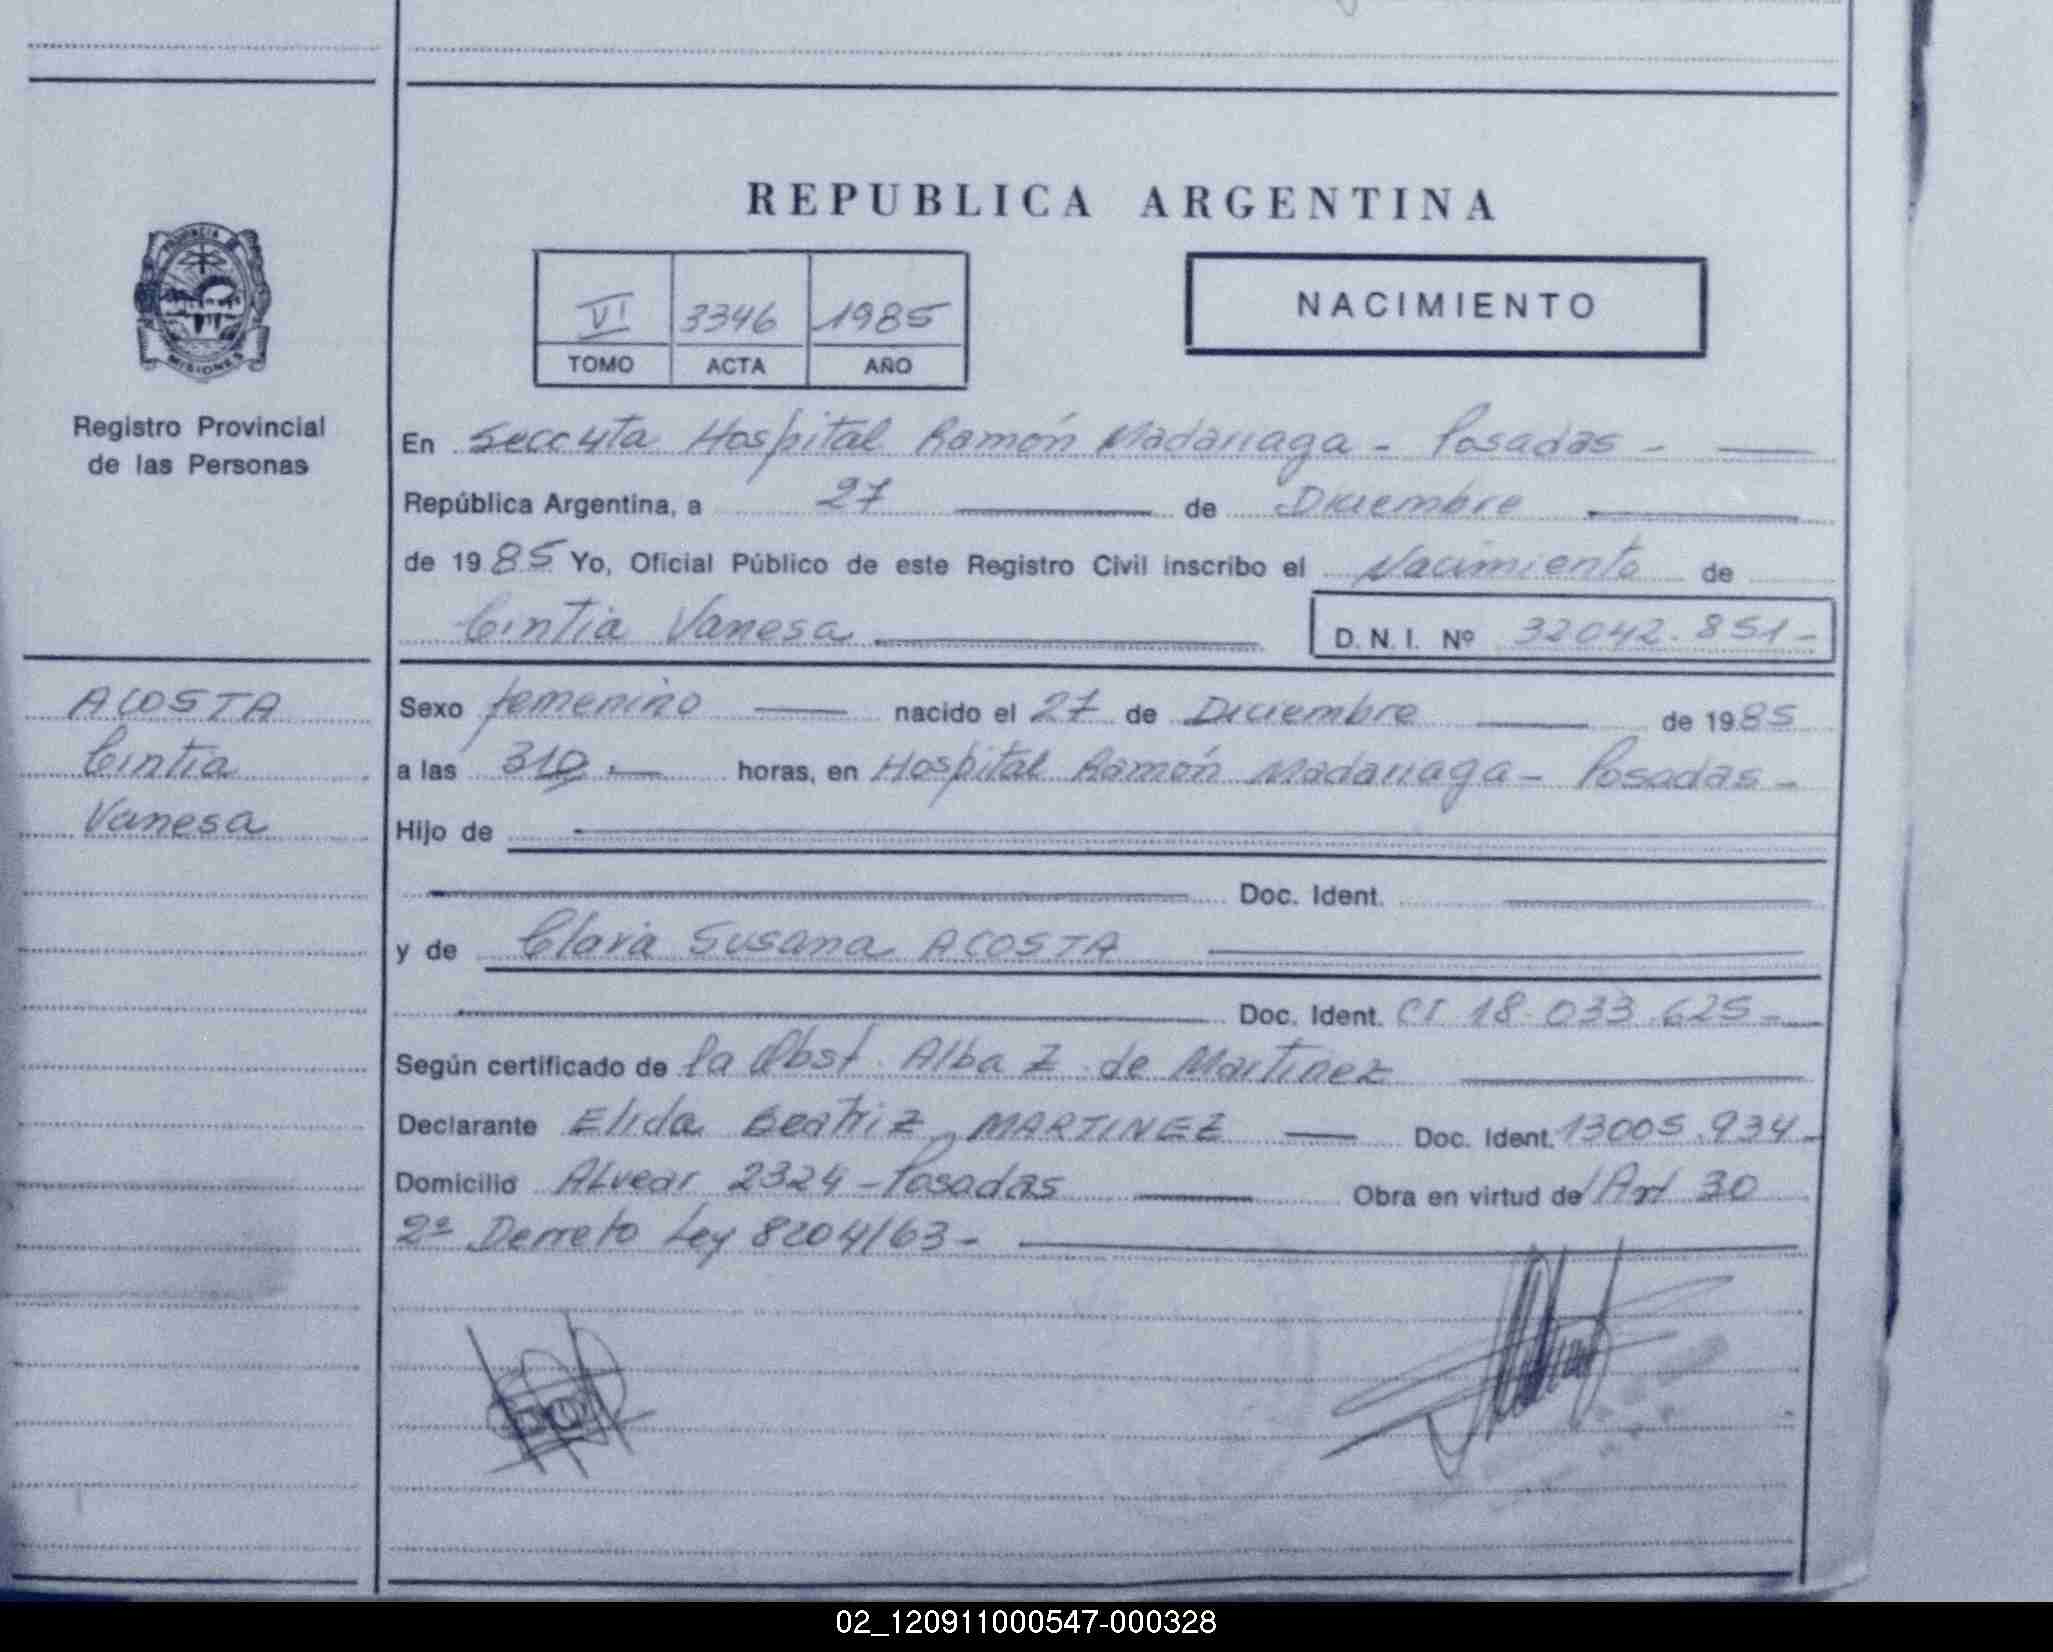 REPUBLICA ARGENTINA
VI 3346 1985
TOMO ACTA AÑO
NACIMIENTO
PROVINCIA DE
MISIONES
Registro Provincial
de las Personas
En Secc 4ta Hospital Ramón Madariaga - Posadas -
República Argentina, a 27 de Diciembre
de 1985 Yo, Oficial Público de este Registro Civil inscribo el Nacimiento de
Cintia Vanesa D. N. I. Nº 32042.851-
ACOSTA
Cintia
Vanesa
Sexo femenino nacido el 27 de Diciembre de 1985
a las 310 horas, en Hospital Ramón Madariaga - Posadas -
Hijo de
Doc. Ident.
y de Clara Susana ACOSTA
Doc. Ident. CI 18.033.625-
Según certificado de la Obst. Alba Z. de Martinez
Declarante Elida Beatriz MARTINEZ Doc. Ident. 13005.934-
Domicilio Alvear 2324 - Posadas Obra en virtud del Art 30
2º Decreto Ley 8204/63-
02_120911000547-000328